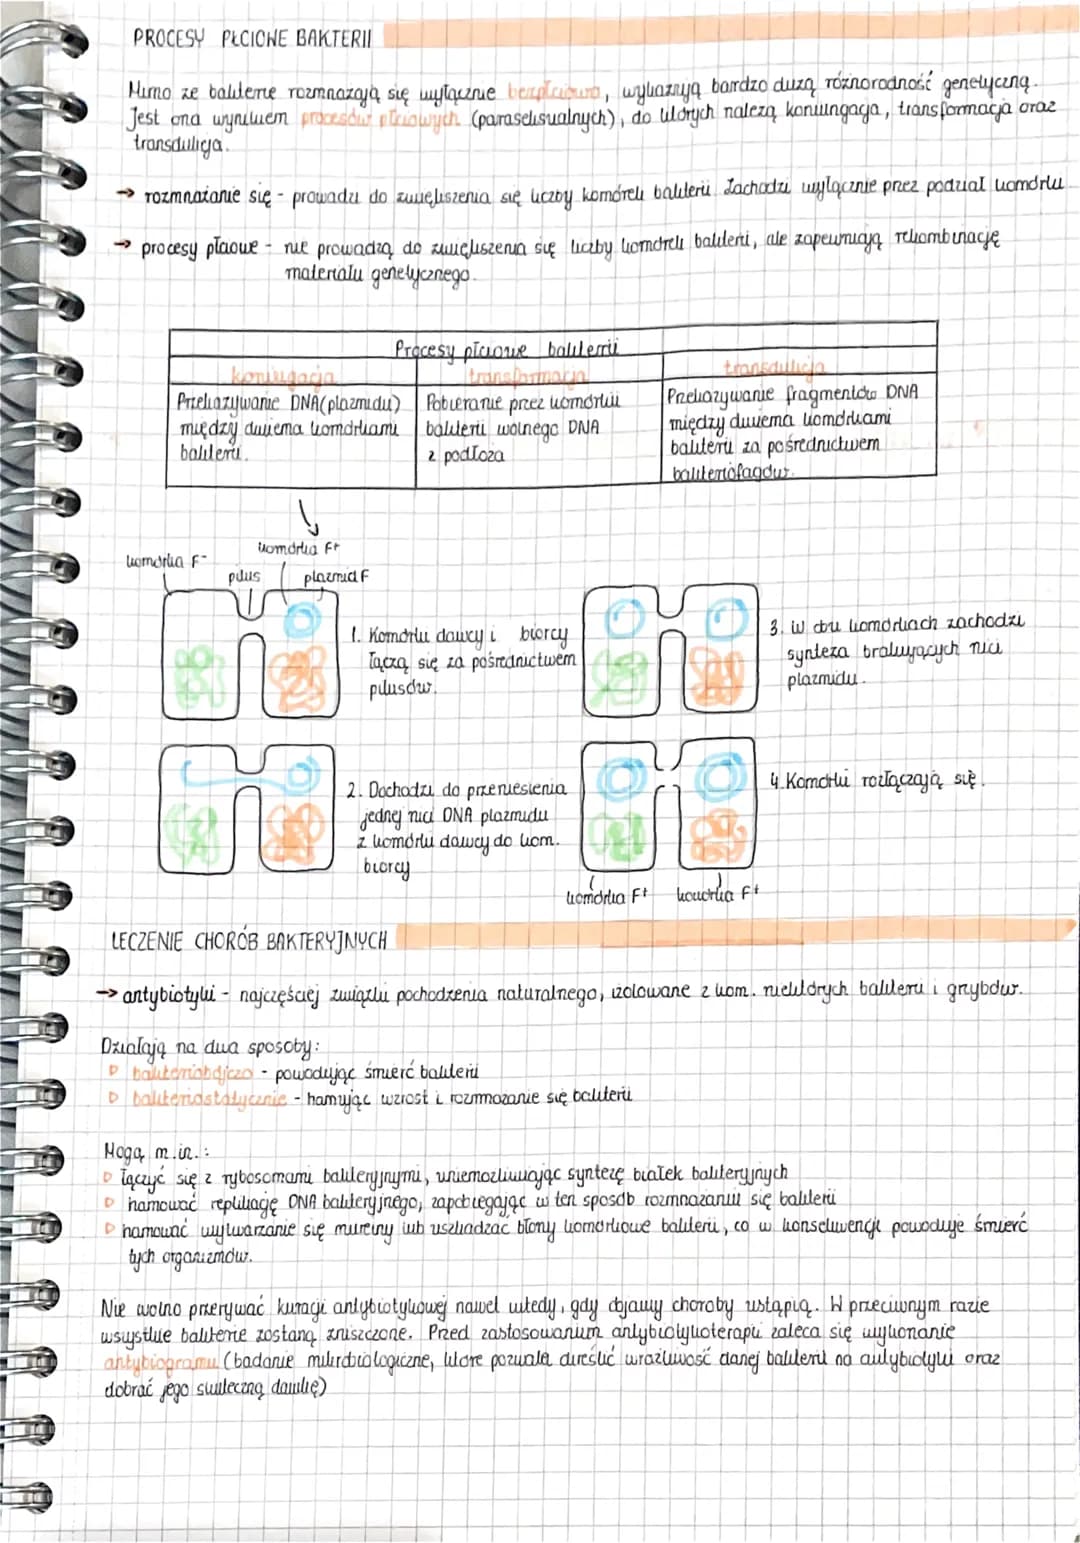 PROCESY PŁCIOWE BAKTERII
Mimo że bakterie rozmnażają się wyłącznie bezpłciowo, wykazują bardzo dużą różnorodność genetyczną.
Jest ona wynikiem procesów płciowych (paraseksualnych), do których należą koniungacja, transformacja oraz
transdukcja.
→ rozmnażanie się - prowadzi do zwiększenia się liczby komórek bakterii. Zachodzi wyłącznie przez podział komórki
→ procesy płciowe - nie prowadzą do zwiększenia się liczby komórek bakterii, ale zapewniają rekombinację
materiału genetycznego.
Procesy płciowe bakterii
koniugacja
transformacja
transdukcja
Przekazywanie DNA (plazmidu)
między dwiema komórkami
bakterii.
Pobieranie przez komórki
bakterii wolnego DNA
z podłoża
Przekazywanie fragmentów DNA
między dwiema komórkami
bakterii za pośrednictwem
bakteriofagów.
komórka F-
komórka F+
pilus
plazmid F
1. Komórki dawcy i biorcy
łączą się za pośrednictwem
pilusów.
3. w obu komórkach zachodzi
synteza brakujących nici
plazmidu.
2. Dochodzi do przeniesienia
jednej nici DNA plazmidu
z komórki dawcy do kom.
biorcy
4. Komórki rozłączają się.
komórka F+
komórka F+
LECZENIE CHORÓB BAKTERYJNYCH
→ antybiotyki - najczęściej związki pochodzenia naturalnego, izolowane z kom. niektórych bakterii i grzybów.
Działają na dwa sposoby:
▷ bakteriobójczo - powodując śmierć bakterii
▷ bakteriostatycznie - hamując wzrost i rozmnożanie się bakterii
Mogą m.in.:
▷ łączyć się z rybosomami bakteryjnymi, uniemożliwiając syntezę białek bakteryjnych
▷ hamować replikację DNA bakteryjnego, zapobiegając w ten sposób rozmnażaniu się bakterii
▷ hamować wytwarzanie się mureiny lub uszkadzać błony komórkowe bakterii, co w konsekwencji powoduje śmierć
tych organizmów.
Nie wolno przerywać kuracji antybiotykowej nawet wtedy, gdy objawy choroby ustąpią. W przeciwnym razie
wsystkie bakterie zostaną zniszczone. Przed zastosowanium antybiotykoterapii zaleca się wykonanie
antybiogramu (badanie mikrobiologiczne, które pozwala określić wrażliwość danej bakterii na antybiotyki oraz
dobrać jego skuteczną dawkę)